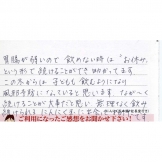 胃腸が弱いので飲めない時は"お休み"
という形で続けることができ助かってます
この冬からは子どもも飲むようになり
風邪予防になっていると思います。ながーく
続けることが大事だと思い 無理なく飲み
続けられるにんにく
ご利用になったご感想をお聞かせ下さい！